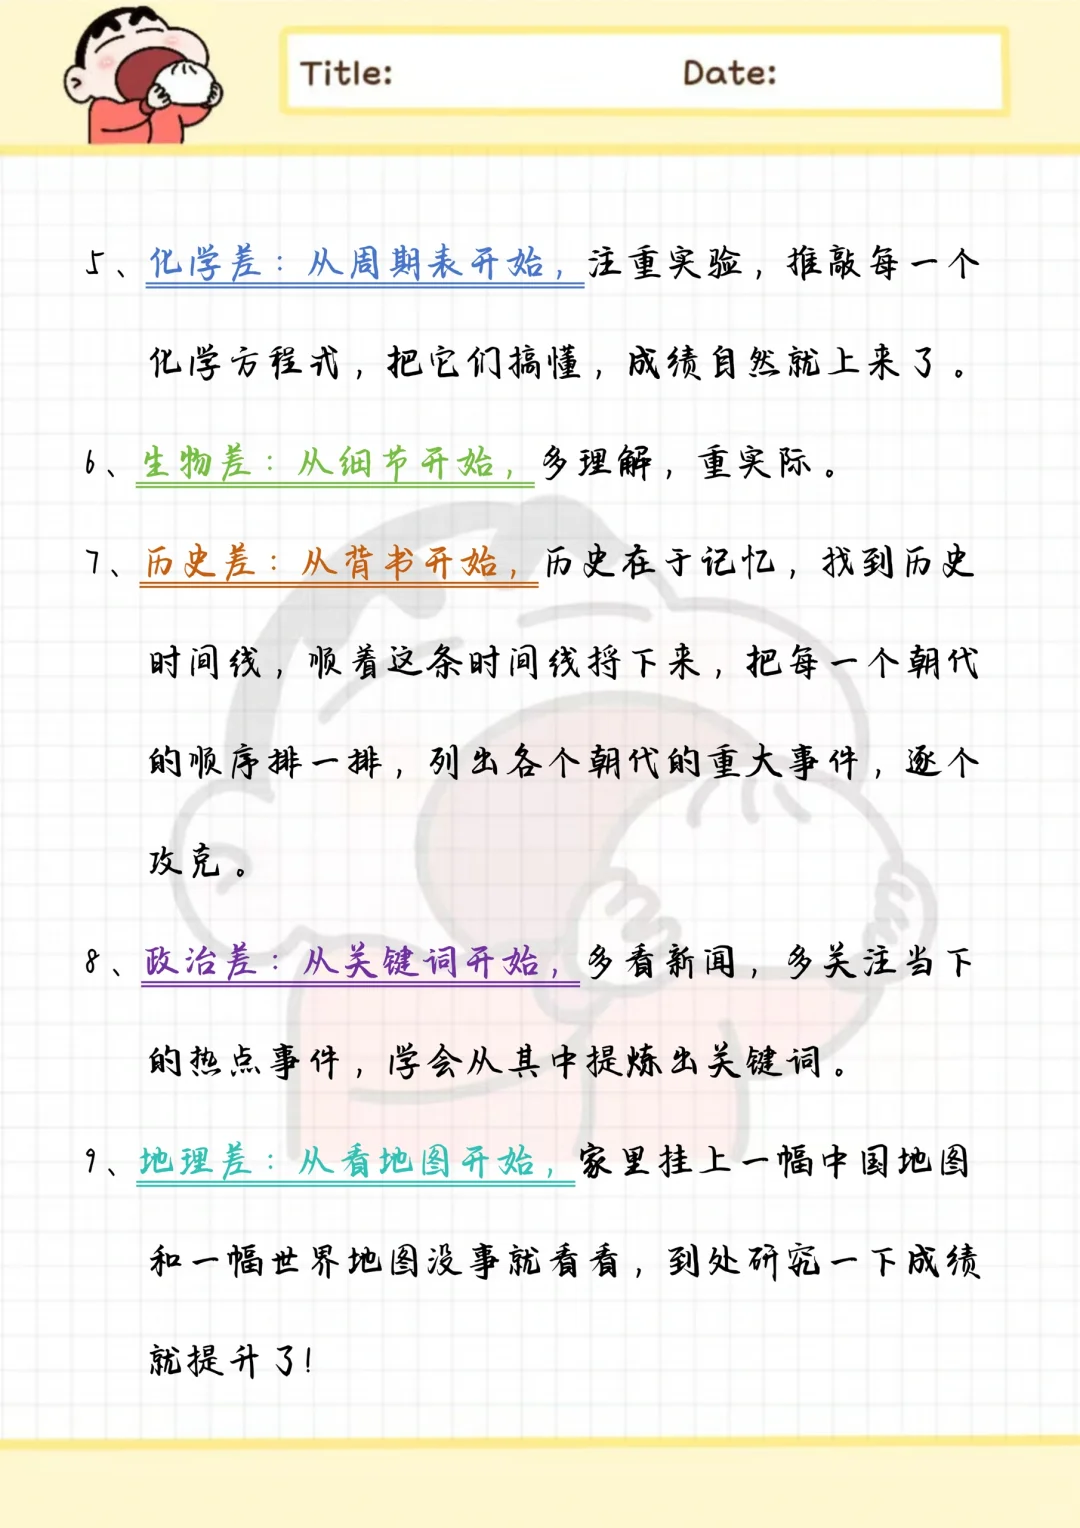 Title: Date:
5、化学差：从周期表开始，注重实验，推敲每一个
化学方程式，把它们搞懂，成绩自然就上来了。
6、生物差：从细节开始，多理解，重实际。
7、历史差：从背书开始，历史在于记忆，找到历史
时间线，顺着这条时间线捋下来，把每一个朝代
的顺序排一排，列出各个朝代的重大事件，逐个
攻克。
8、政治差：从关键词开始，多看新闻，多关注当下
的热点事件，学会从其中提炼出关键词。
9、地理差：从看地图开始，家里挂上一幅中国地图
和一幅世界地图没事就看看，到处研究一下成绩
就提升了！